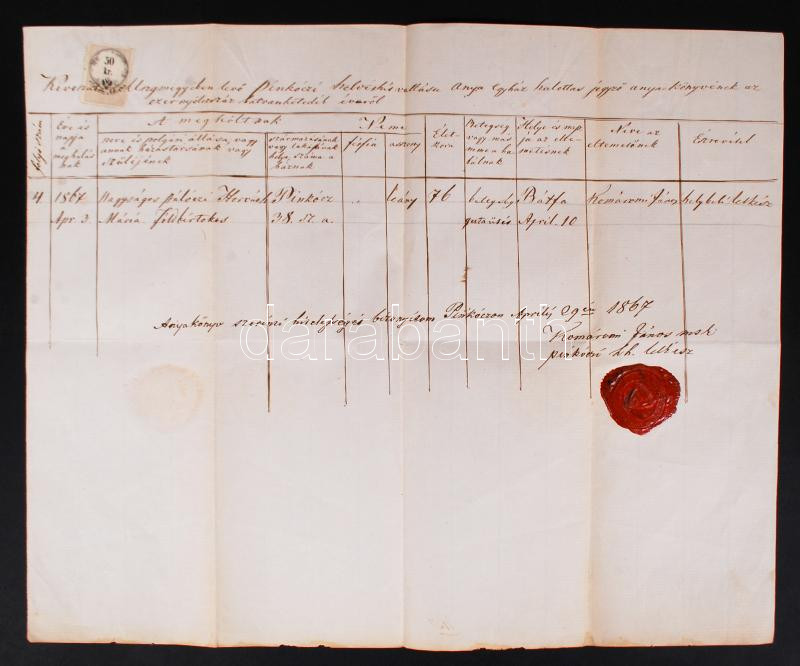 50
kr.
Kivonat Ungmegyében levő Pinkóczi helvét hitvallásu Anya Egyház halottas jegyző anyakönyvének az
ezernyolczszáz hatvanhetedik évéről
folyó szám
Éve és napja a meghalás nak
A megholtnak
neve és polgári állása, vagy annak házastársának vagy szülőjének
származásának vagy lakásának helye, száma a háznak
Neme
fiúfia
asszony
Élet kora
Betegség vagy más neme a ha lálnak
Helye és nap ja az elte metésnek
Neve az eltemetőnek
Észrevétel
4
1867
Apr. 3.
Nagyságos Pálóczi Horváth
Mária földbirtokos
Pinkócz
38. sz. a.
leány
76
betegség
gutaütés
Bátfa
April. 10
Komáromi János
helybeli lelkész
Anyakönyv szerinti hitelességét bizonyítom Pinkóczon Aprily 29én 1867
Komáromi János msk
pinkóczi h.h. lelkész
darabanth